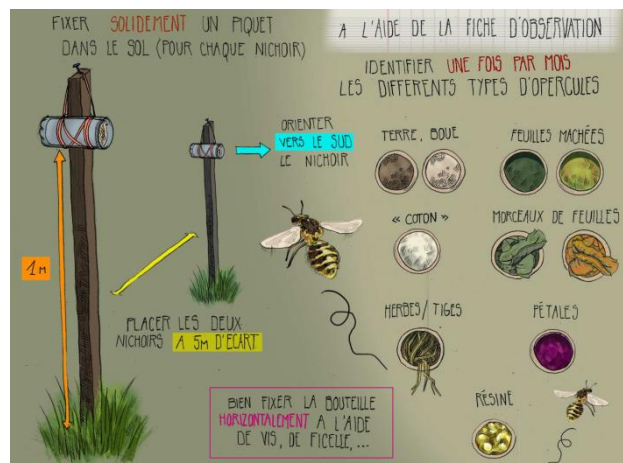 FIXER SOLIDEMENT UN PIQUET
DANS LE SOL (POUR CHAQUE NICHOIR)
ORIENTER
VERS LE SUD
LE NICHOIR
1M
PLACER LES DEUX
NICHOIRS A 5M D'ECART
BIEN FIXER LA BOUTEILLE
HORIZONTALEMENT A L'AIDE
DE VIS, DE FICELLE,...
A L'AIDE DE LA FICHE D'OBSERVATION
IDENTIFIER UNE FOIS PAR MOIS
LES DIFFERENTS TYPES D'OPERCULES
TERRE, BOUE
FEUILLES MACHÉES
« COTON »
MORCEAUX DE FEUILLES
HERBES/TIGES
PÉTALES
RÉSINE